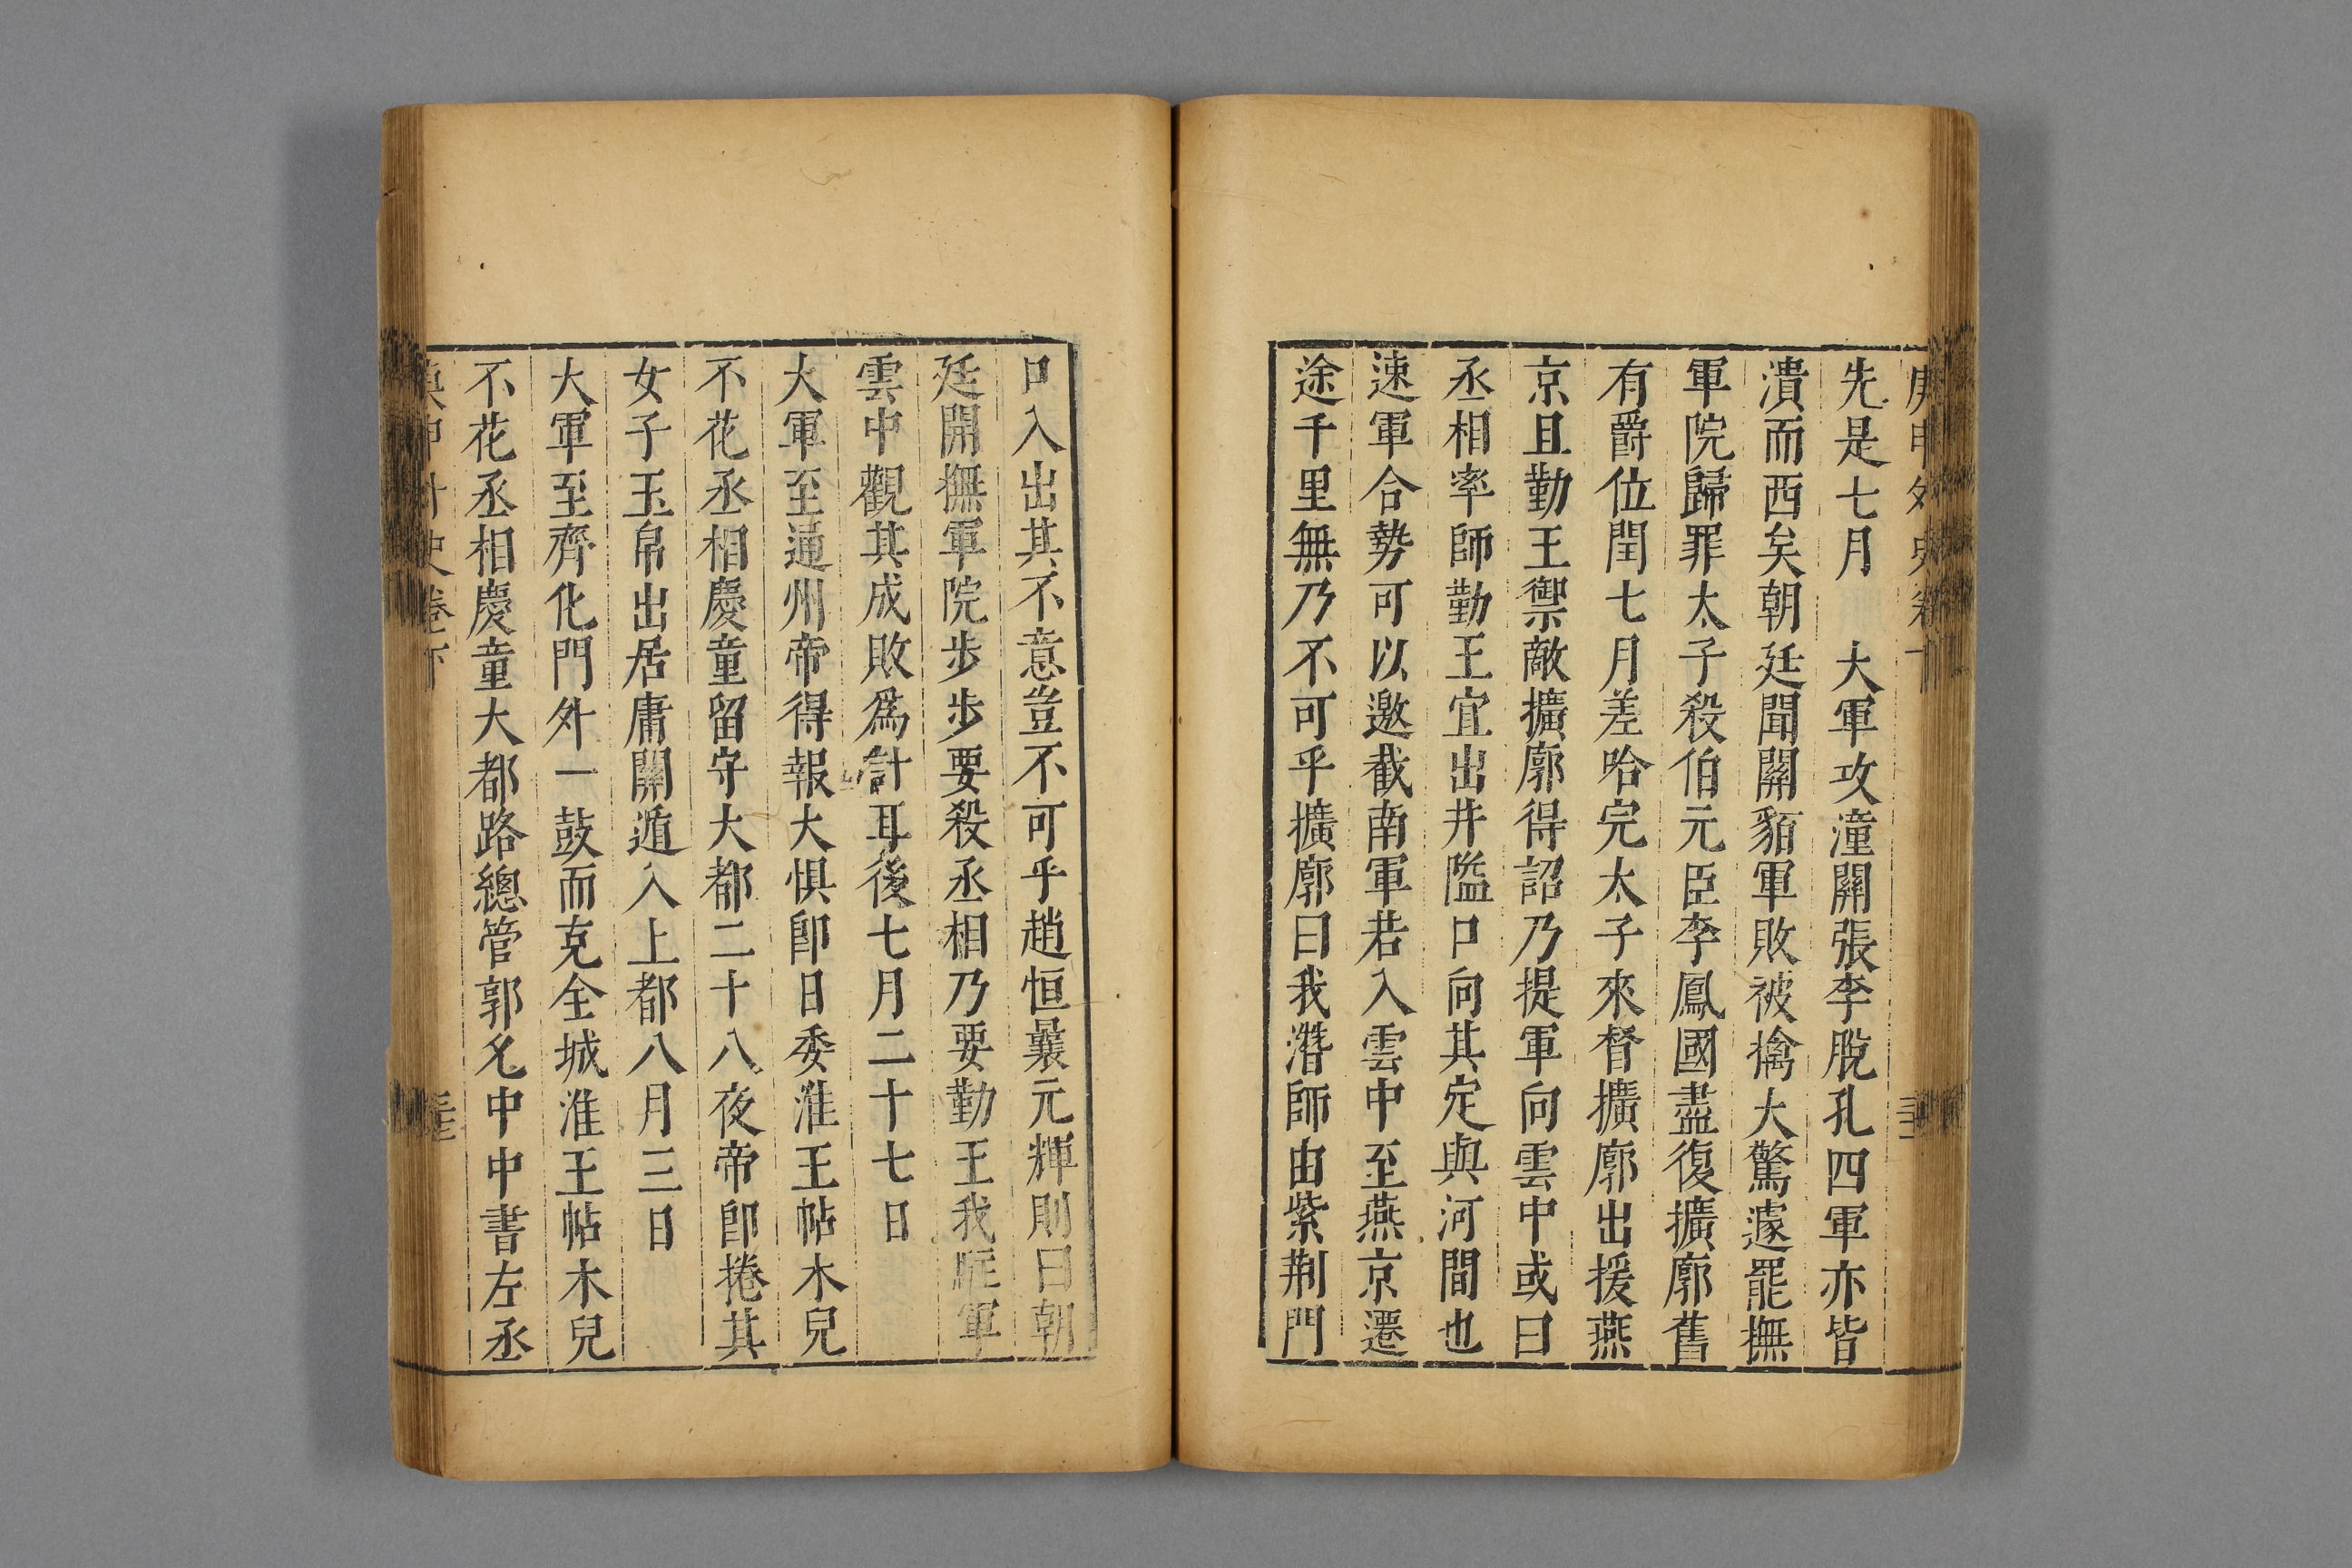 庚申外史卷下
先是七月　大軍攻潼關張李脫孔四軍亦皆
潰而西矣朝廷聞關貊軍敗被擒大驚遽罷撫
軍院歸罪太子殺伯元臣李鳳國盡復擴廓舊
有爵位閏七月差哈完太子來督擴廓出援燕
京且勤王禦敵擴廓得詔乃提軍向雲中或曰
丞相率師勤王宜出井陘口向其定與河間也
速軍合勢可以邀截南軍若入雲中至燕京遷
途千里無乃不可乎擴廓曰我潛師由紫荆門
口入出其不意豈不可乎趙恒㬮元輝則曰朝
廷開撫軍院步步要殺丞相乃要勤王我軍
雲中觀其成敗爲計耳後七月二十七日
大軍至通州帝得報大惧卽日委淮王帖木兒
不花丞相慶童留守大都二十八夜帝卽捲其
女子玉帛出居庸關遁入上都八月三日
大軍至齊化門外一鼓而克全城淮王帖木兒
不花丞相慶童大都路總管郭允中中書左丞
庚申外史卷下